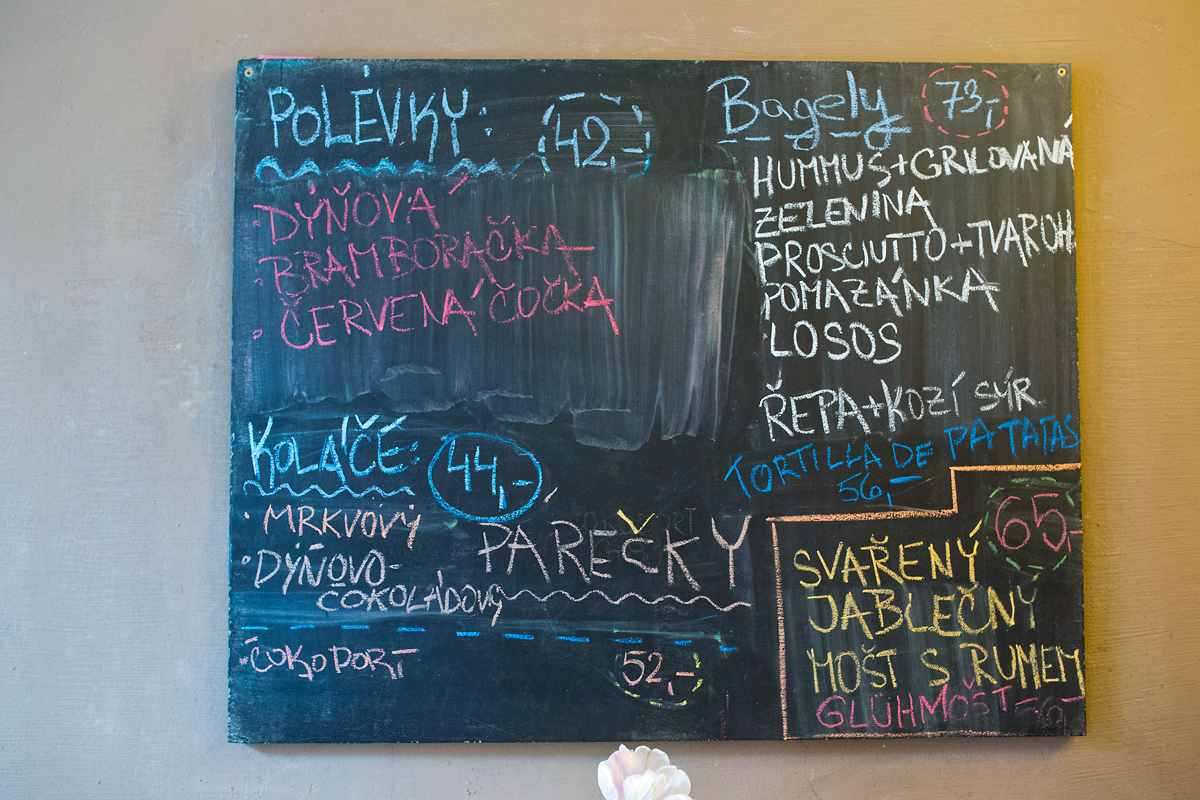 POLÉVKY: 42,-
· DÝŇOVÁ
· BRAMBORAČKA
· ČERVENÁ ČOČKA
KOLÁČE: 44,-
· MRKVOVÝ
· DÝŇOVO-
ČOKOLÁDOVÝ
· ČOKOPORT 52,-
PAREČKY
Bagely 73,-
HUMMUS+GRILOVANÁ
ZELENINA
PROSCIUTTO+TVAROH.
POMAZÁNKA
LOSOS
ŘEPA+KOZÍ SÝR
TORTILLA DE PATATAS
56,-
65,-
SVAŘENÝ
JABLEČNÝ
MOŠT S RUMEM
GLÜHMOŠT -56,-